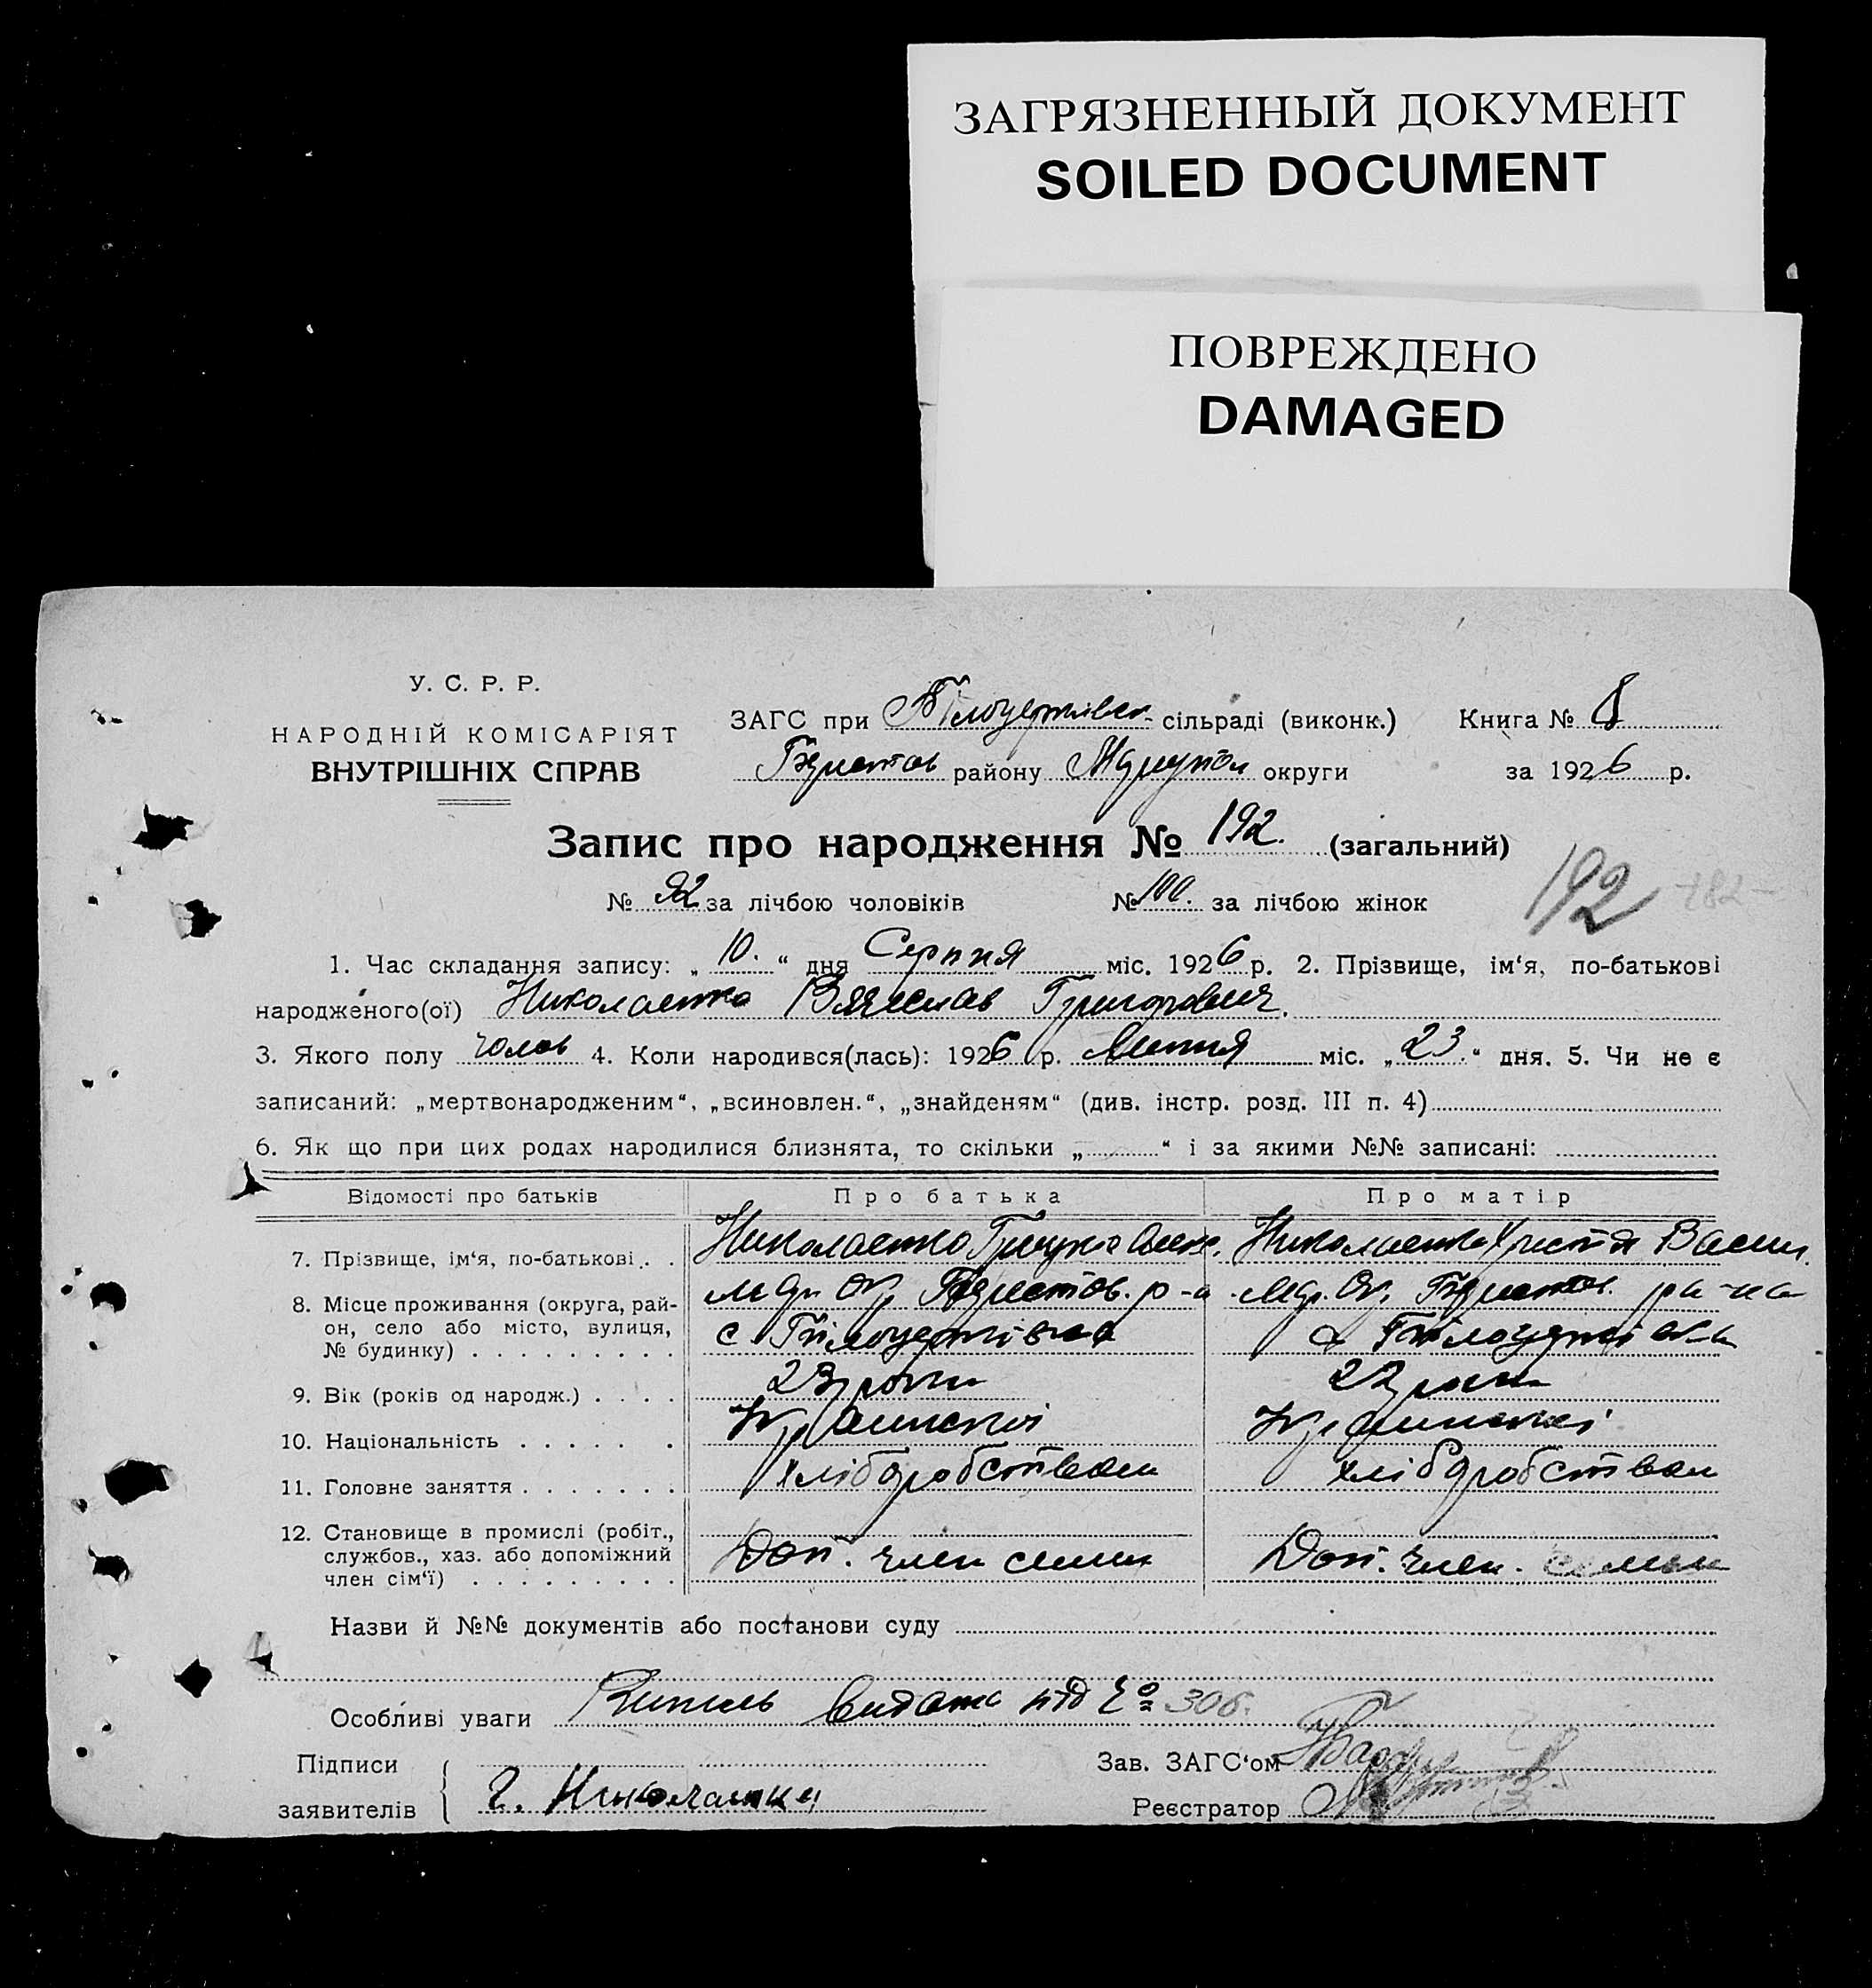 ЗАГРЯЗНЕННЫЙ ДОКУМЕНТ
SOILED DOCUMENT
ПОВРЕЖДЕНО
DAMAGED
У. С. Р. Р.
НАРОДНІЙ КОМІСАРІЯТ
ВНУТРІШНІХ СПРАВ
ЗАГС при Білоцерківськ сільраді (виконк.) Книга № 8
району Маріупол округи за 1926 р.
Запис про народження № 192. (загальний)
№ 92 за лічбою чоловіків № 100. за лічбою жінок
192 182
1. Час складання запису: „ 10. “ дня Серпня міс. 1926 р. 2. Прізвище, ім‘я, по-батькові
народженого(ої) Николаенко Вячеслав Григорович.
3. Якого полу чолов 4. Коли народився(лась): 1926 р. Липня міс. „ 23. “ дня. 5. Чи не є
записаний: „мертвонародженим“, „всиновлен.“, „знайденям“ (див. інстр. розд. III п. 4)
6. Як що при цих родах народилися близнята, то скільки „ “ і за якими №№ записані:
Відомості про батьків Про батька Про матір
7. Прізвище, ім‘я, по-батькові . . Николаенко Николаенко Христя Васил.
8. Місце проживання (округа, рай-
он, село або місто, вулиця,
№ будинку) . . . . . . . . . с Білоцерківка с Білоцерківка
9. Вік (років од народж.) . . . . 23 роки 22 роки
10. Національність . . . . . . Української Української
11. Головне заняття . . . . . . . хліборобством хліборобством
12. Становище в промислі (робіт.,
службов., хаз. або допоміжний
член сім‘ї) . . . . . . . . . Доп. член семьи Доп. член. семьи
Назви й №№ документів або постанови суду
Особливі уваги Випись видана під № 306.
Підписи
заявителів Г. Николаенко
Зав. ЗАГС‘ом
Реєстратор